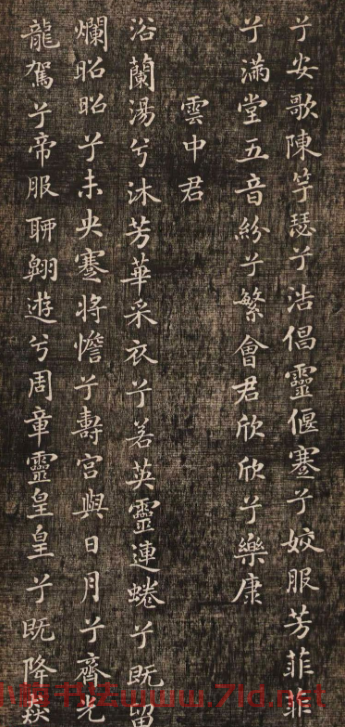 兮安歌陳竽瑟兮浩倡靈偃蹇兮姣服芳菲菲
兮滿堂五音紛兮繁會君欣欣兮樂康
雲中君
浴蘭湯兮沐芳華采衣兮若英靈連蜷兮既留
爛昭昭兮未央蹇將憺兮壽宮與日月兮齊光
龍駕兮帝服聊翱遊兮周章靈皇皇兮既降猋
书法www.7ld.net